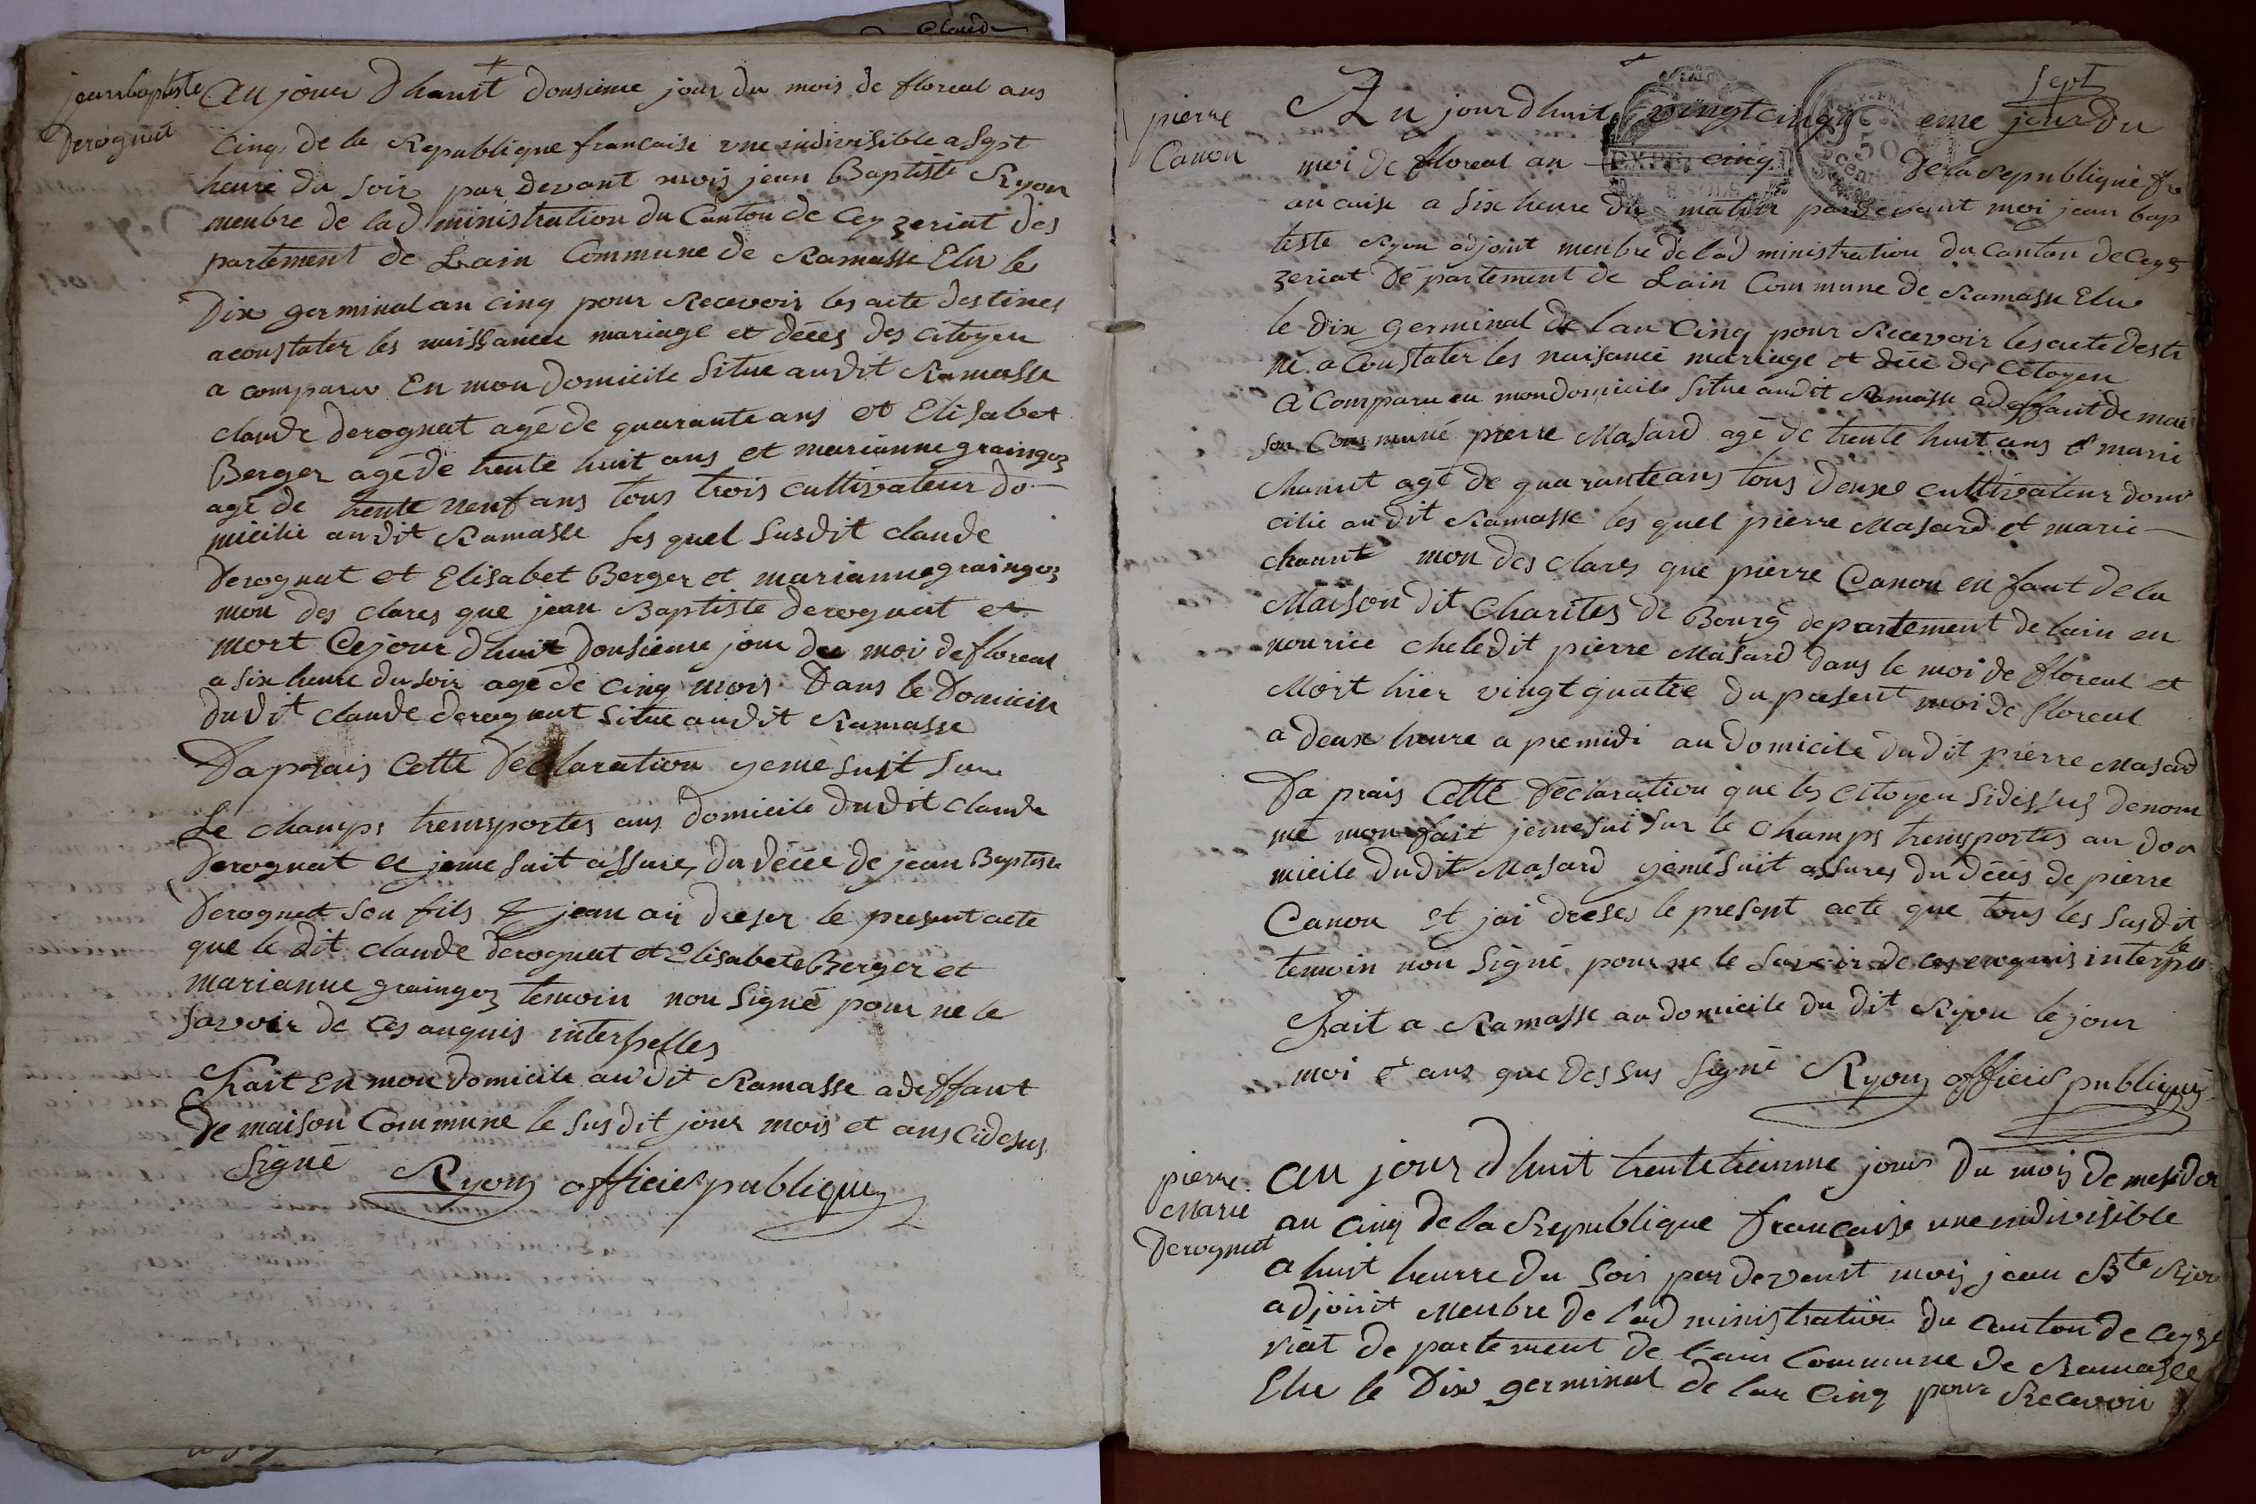 Claude
jean baptiste
Derognat
Au jour dhauit dousieme jour du mois de floreal ans
Cinq de la Republique francaise une indivisible a Sept
heure du soir par devant mois jean Baptiste Ryon
menbre de lad ministration du Canton de Ceyzeriat des
partement de Lain Commune de Ramasse Elu le
Dix germinal an cinq pour Recevoir les acte destines
a constater les naissancee mariage et décés des citoyen
a comparu En mon Domicile Situe audit Ramasse
claude derognat agé de quarante ans et Elisabet
Berger agé de trente huit ans et marianne graingoz
agé de trente neuf ans tous trois cultivateur do-
micilie audit Ramasse les quel susdit claude
Derognat et Elisabet Berger et marianne graingoz
mon des clares que jean Baptiste derognat et
mort Cejour dhuit Dousieme jour du moi de floreal
a six heure du soir agé de cinq mois Dans le Domicile
dudit claude derognat situe audit Ramasse
Daprais Cette Declaration yeme suit sur
Le champs trensportes aus domicile dudit claude
Derognat et jeme suit assure, du décée de jean Baptiste
Derognat son fils & jean ai dreser le present acte
que le dit claude derognat et Elisabete Berger et
marianne graingoz temoin non signé pour ne le
savoir de ces anquis interpelles
Fait En mon domicile audit Ramasse adeffaut
De maison Commune le susdit jour mois et ans cidesus
Signé Ryon officier publique
Sept
pierre
Canon
Au jourdhuit vingtcinq eme jour du
moi de floreal an cinq De la Republique fr
ancaise a six heure du matin pardevant moi jean bap
teste Ryon adjoint menbre de lad ministration du canton de Cey
zeriat Departement de Lain Commune de Ramasse Elu
le dix germinal de lan Cinq pour Recevoir les acte desti
né a Constater les naisancé mariage et décé des Citoyen
A Comparu en mon domicile situe audit Ramasse adeffaut de mai
son Commune pierre Masard agé de trente huit ans & marie
chanut agé de quarante ans tous deuxe cultivateur domi
cilie audit Ramasse les quel pierre Masard et marie
chanut mon des clares que pierre Canon enfant de la
Maison dit Charites de Bourg departement de lain en
nourice che ledit pierre Masard dans le moi de floreal et
Mort hier vingt quatre du present moi de floreal
a deux heure a premidi au domicile dudit pierre Masard
Da prais Cette Déclaration que les citoyen sidessus denom
mé mon fait jeme sui sur le champs trensportes au do
micile dudit Masard yeme suit assures du décés de pierre
Canon et jai dreses le present acte que tous les susdit
temoin non signé pour ne le savoir de ces enquis interpelle
Fait a Ramasse au domicile du dit Ryon le jour
moi & ans que dessus signé Ryon officier publique
pierre
Marie
Derognat
Au jour dhuit trentetieunme jour du mois de mesidor
an cinq de la Republique francaise une indivisible
a huit heurre du soir par devant moi jean Bte Ryon
adjoint Menbre de lad ministration du Canton de Ceyze
riat de partement de Lain Commune de Ramasse
Elu le Dix germinal de lan Cinq pour Recevoir